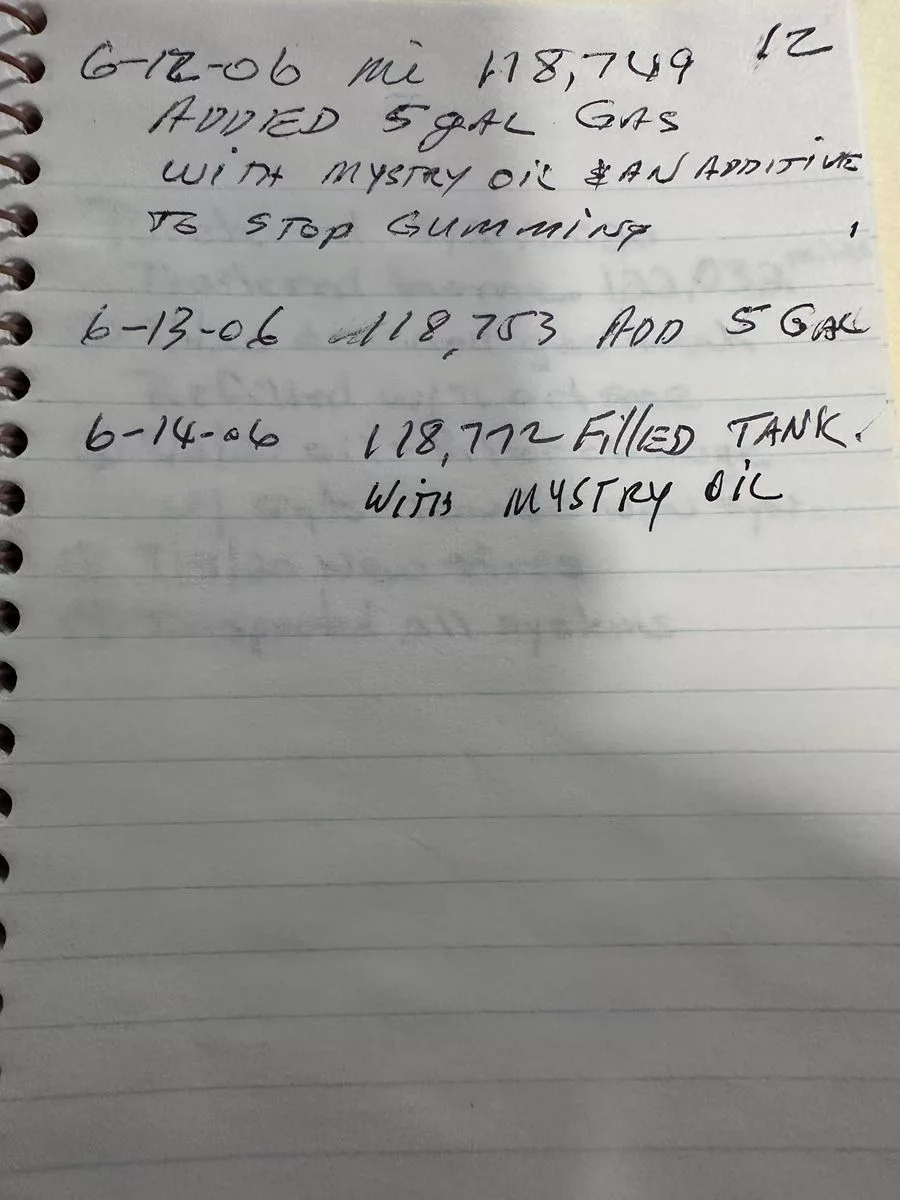 12
6-12-06 mi 118,749
ADDED 5 gAL GAS
WITH MYSTRY OIL & AN ADDITIVE
TO STOP GUMMING
6-13-06 118,753 ADD 5 GAL
6-14-06 118,772 FillED TANK.
WITH MYSTRY OIL